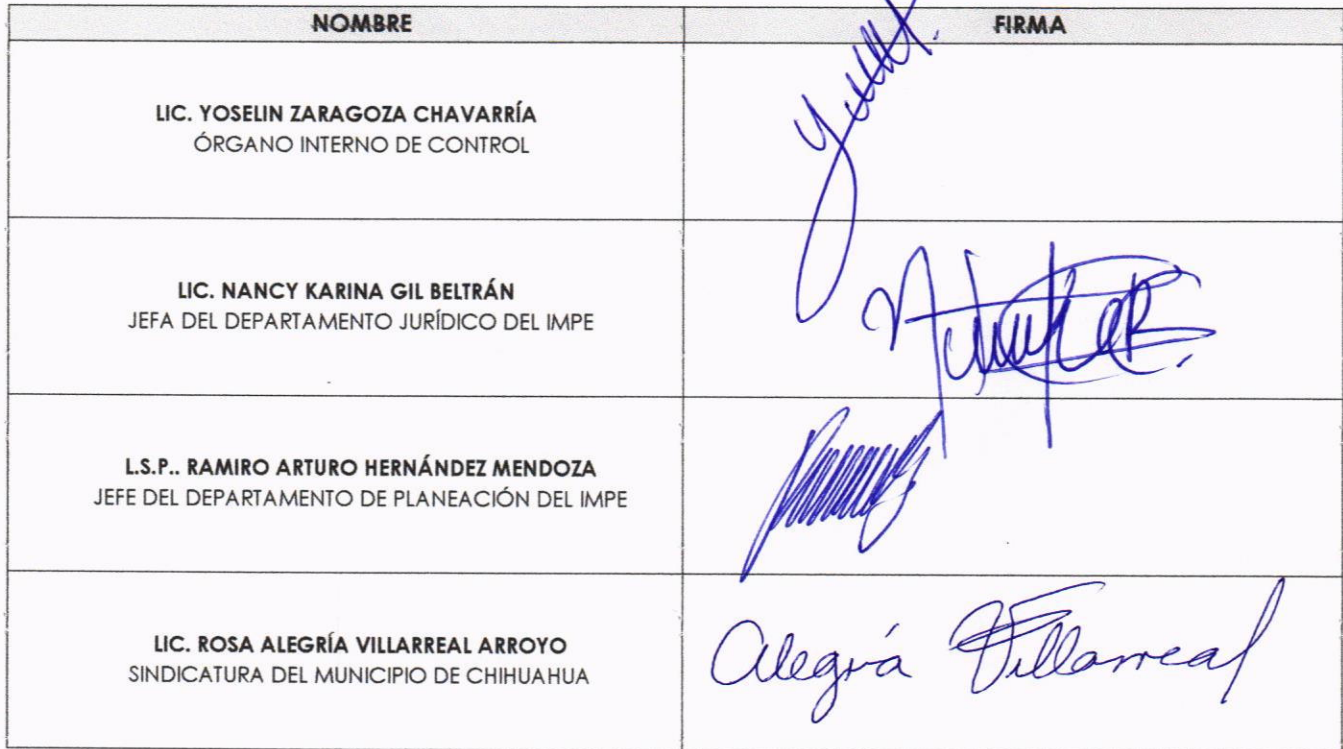 NOMBRE FIRMA
LIC. YOSELIN ZARAGOZA CHAVARRÍA
ÓRGANO INTERNO DE CONTROL
LIC. NANCY KARINA GIL BELTRÁN
JEFA DEL DEPARTAMENTO JURÍDICO DEL IMPE
L.S.P.. RAMIRO ARTURO HERNÁNDEZ MENDOZA
JEFE DEL DEPARTAMENTO DE PLANEACIÓN DEL IMPE
LIC. ROSA ALEGRÍA VILLARREAL ARROYO
SINDICATURA DEL MUNICIPIO DE CHIHUAHUA
Alegría Villarreal